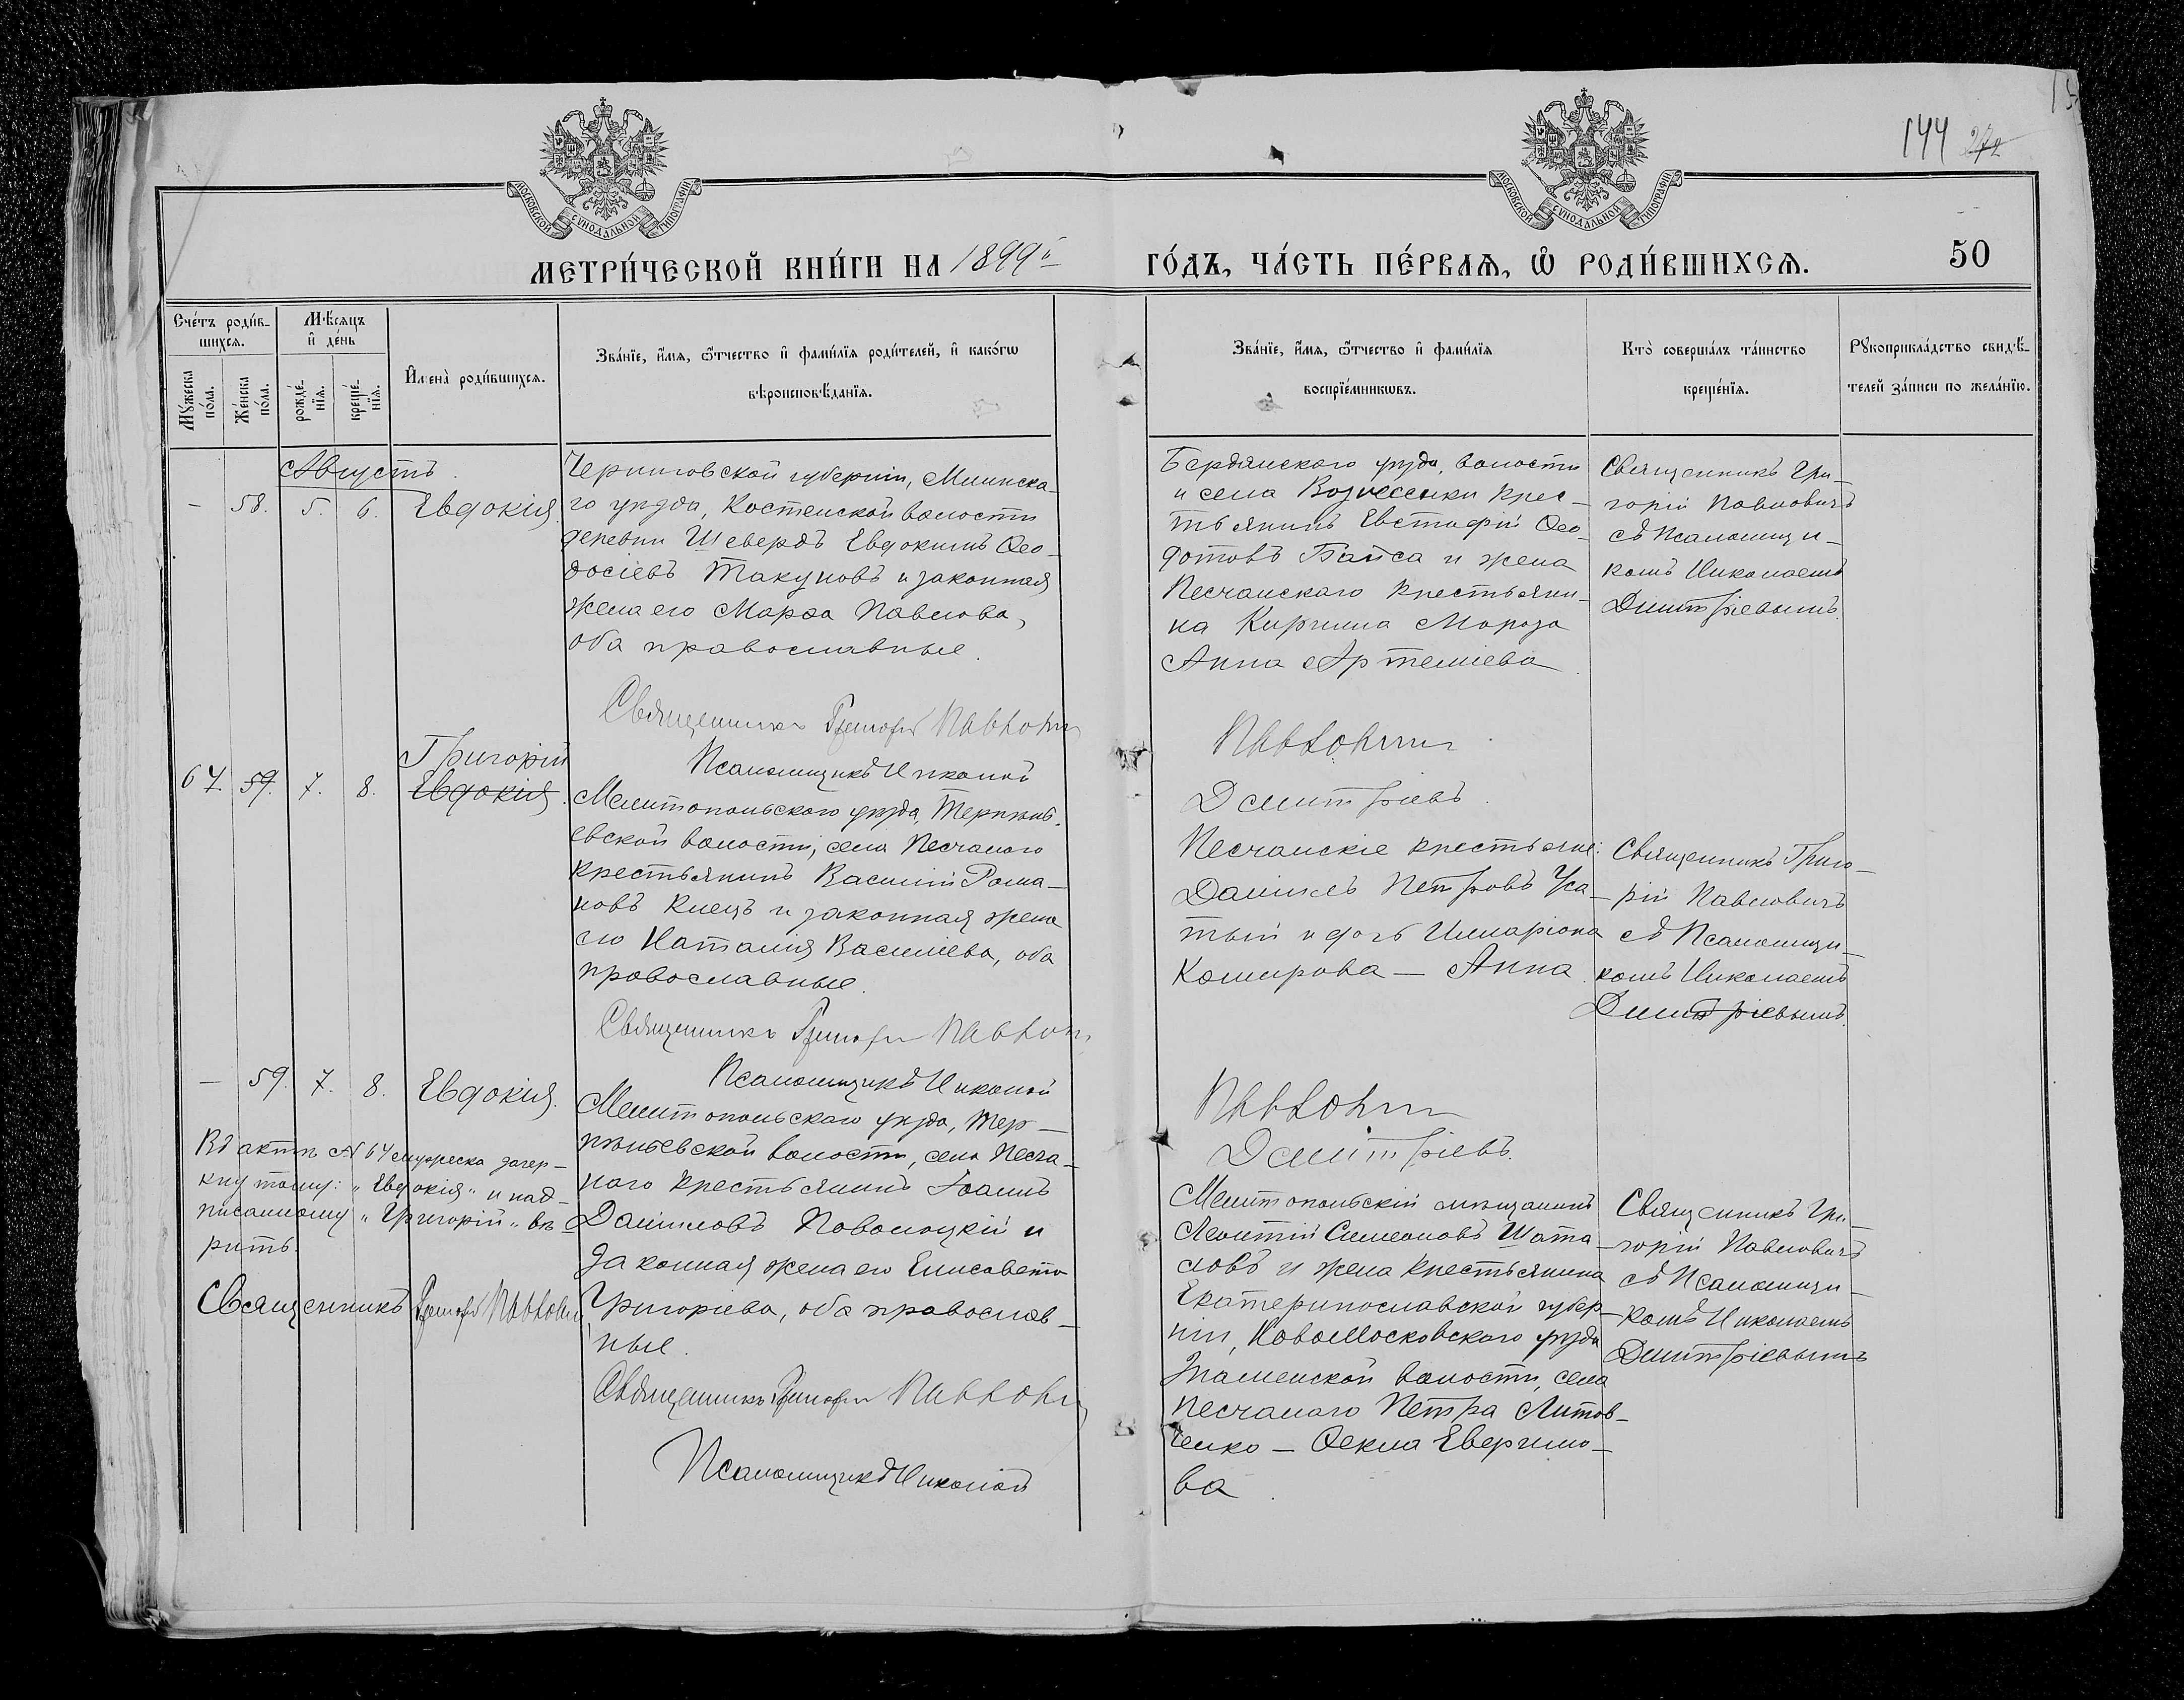 144 272
МОСКОВСКОЙ СѴНОДАЛЬНОЙ ТИПОГРАФІИ
МОСКОВСКОЙ СѴНОДАЛЬНОЙ ТИПОГРАФІИ
МЕТРИ́ЧЕСКОЙ КНИ́ГИ НА 1899й
ГО́ДЪ, ЧА́СТЬ ПЕ́РВАЯ, Ѽ РОДИ́ВШИХСЯ.
50
Сче́тъ роди́в-
шихся.
Мꙋ́жеска по́ла.
Же́нска по́ла.
Мѣ́сяцъ и҆ де́нь
рожде́-нїя.
креще́-нїя.
И҆мена̀ роди́вшихся.
Зва́нїе, и҆́мя, ѻ҆́тчество и҆ фами́лїя роди́телей, и҆ како́гѡ
вѣроисповѣ́данїя.
Зва́нїе, и҆́мя, ѻ҆́тчество и҆ фами́лїя
воспрїе́мникѡвъ.
Кто̀ соверша́лъ та́инство
креще́нїя.
Рꙋкоприкла́дство свидѣ́-
телей за́писи по жела́нїю.
Августъ.
- 58. 5. 6. Евдокія.
Черниговской губерніи, Мглинска-
го уѣзда, Костенской волости
деревни Шевердъ Евдокимъ Ѳео-
досіевъ Такуновъ и законная
жена его Марѳа Павлова,
оба православные.
Священникъ Григорій Павловичъ
Псаломщикъ Николай
Бердянского уѣзда, волости
и села Вознесенки крес-
тьянинъ Евстафій Ѳео-
дотовъ Байса и жена
Песчанского крестьяни-
на Кирилла Мороза
Анна Артеміева.
Павловичъ
Дмитріевъ.
Священникъ Гри-
горій Павловичъ
съ Псаломщи-
комъ Николаемъ
Дмитріевымъ.
64. 59. 7. 8. Григорій
Евдокія.
Мелитопольского уѣзда, Терпѣнь-
евской волости, села Песчаного
крестьянинъ Василій Рома-
новъ Кнецъ и законная жена
его Наталія Василіева, оба
православные.
Священникъ Григорій Павловичъ
Псаломщикъ Николай
Песчанскіе крестьяне:
Даніилъ Петровъ Уса-
тый и дочь Илларіона
Комирова — Анна.
Павловичъ
Дмитріевъ.
Священникъ Григо-
рій Павловичъ
съ Псаломщи-
комъ Николаемъ
Дмитріевымъ.
- 59. 7. 8. Евдокія.
Мелитопольского уѣзда, Тер-
пѣньевской волости, села Песча-
ного крестьянинъ Іоаннъ
Даніиловъ Поволоцкій и
законная жена его Елисавета
Григоріева, оба православ-
ные.
Священникъ Григорій Павловичъ
Псаломщикъ Николай
Мелитопольскій мѣщанинъ
Леонтій Симеоновъ Шата-
ловъ и жена крестьянина
Екатеринославской губер-
ніи, НовоМосковского уѣзда
Знаменской волости, села
Песчаного Петра Литов-
ченко — Ѳекла Евергимо-
ва.
Священникъ Гри-
горій Павловичъ
съ Псаломщи-
комъ Николаемъ
Дмитріевымъ
Въ актѣ № 64 мужеска зачер-
кнутому: "Евдокія" и над-
писанному "Григорій" вѣ-
рить.
Священникъ Григорій Павловичъ